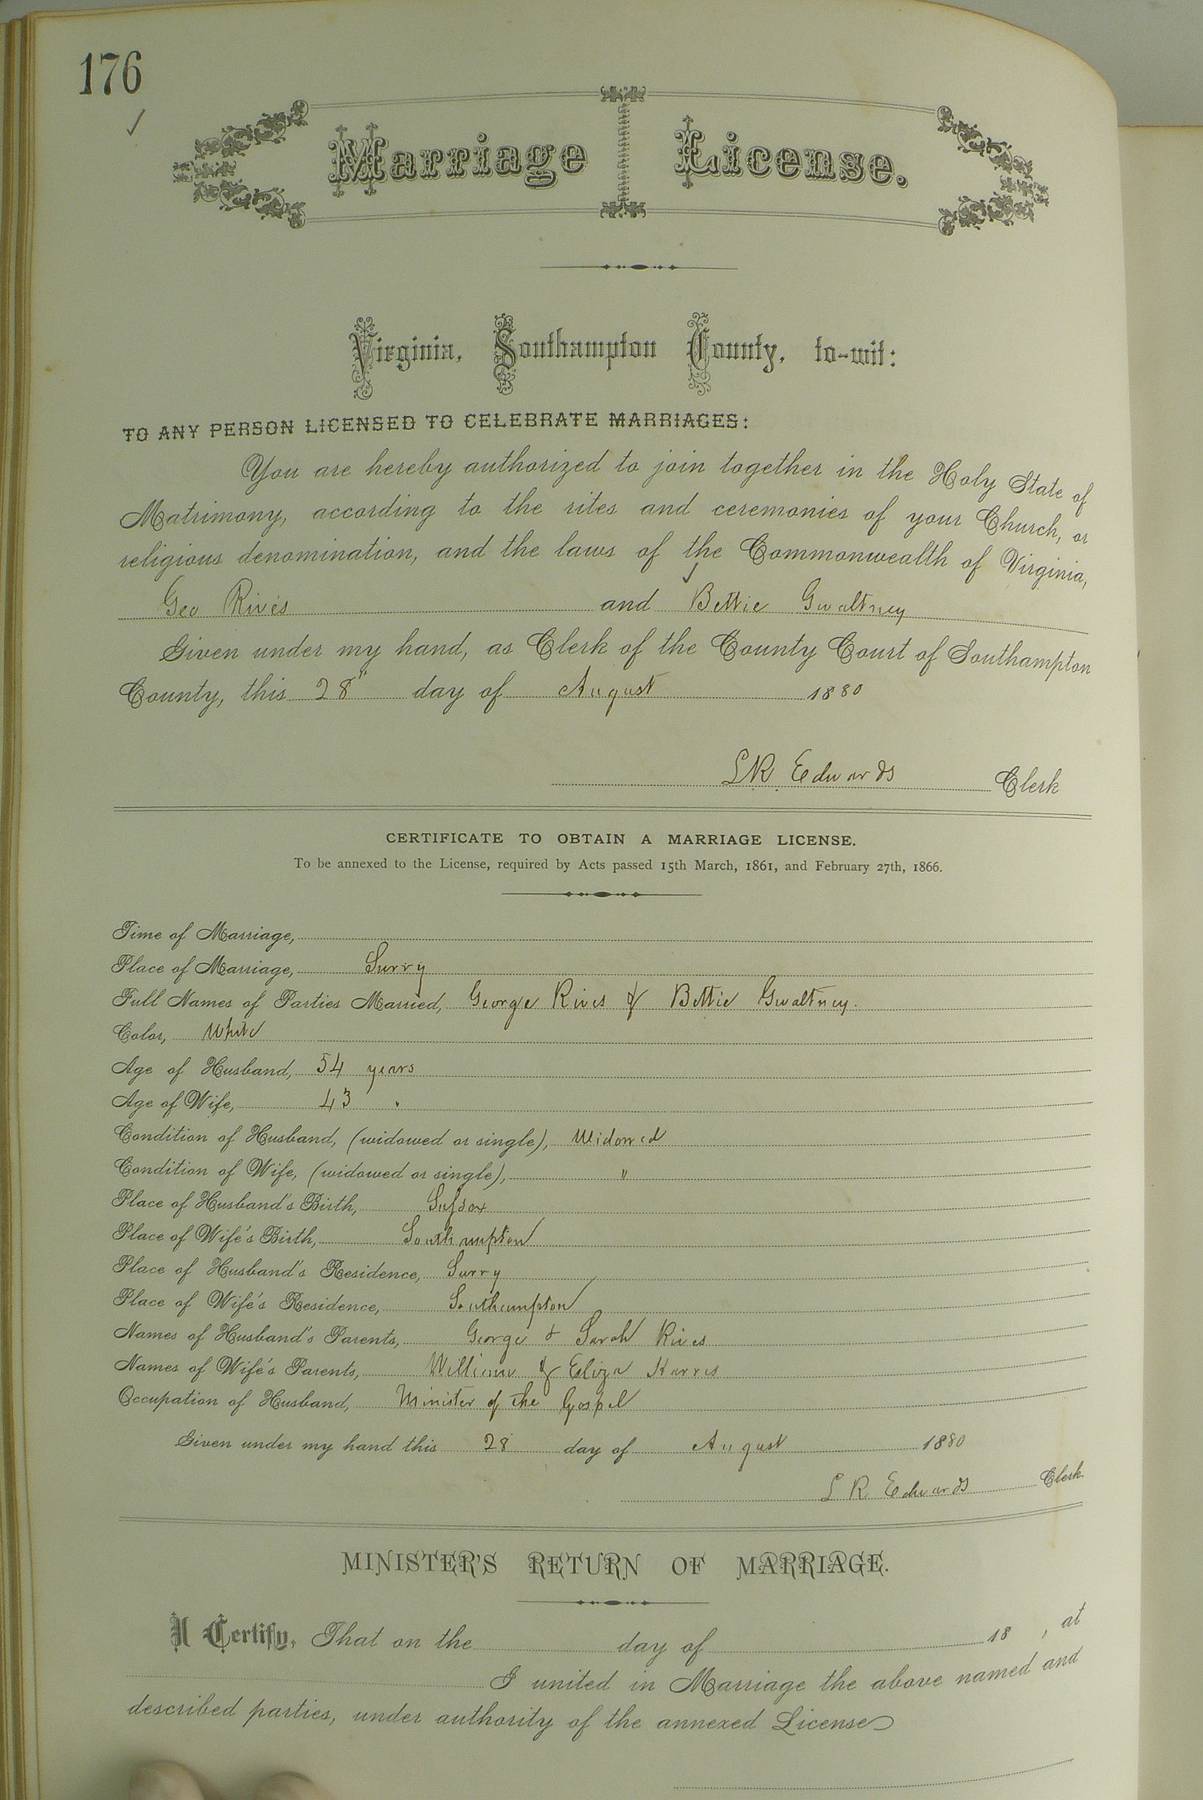 176
✓
Marriage License.
Virginia, Southampton County, to-wit:
TO ANY PERSON LICENSED TO CELEBRATE MARRIAGES:
You are hereby authorized to join together in the Holy State of
Matrimony, according to the rites and ceremonies of your Church, or
religious denomination, and the laws of the Commonwealth of Virginia,
Geo Rives and Bettie Gwaltney
Given under my hand, as Clerk of the County Court of Southampton
County, this 28" day of August 1880
L R Edwards Clerk
CERTIFICATE TO OBTAIN A MARRIAGE LICENSE.
To be annexed to the License, required by Acts passed 15th March, 1861, and February 27th, 1866.
Time of Marriage,
Place of Marriage, Surry
Full Names of Parties Married, George Rives & Bettie Gwaltney.
Color, White
Age of Husband, 54 years
Age of Wife, 43 "
Condition of Husband, (widowed or single), Widowed
Condition of Wife, (widowed or single), "
Place of Husband's Birth, Sussex
Place of Wife's Birth, Southampton
Place of Husband's Residence, Surry
Place of Wife's Residence, Southampton
Names of Husband's Parents, George & Sarah Rives
Names of Wife's Parents, William & Eliza Harris
Occupation of Husband, Minister of the Gospel
Given under my hand this 28 day of August 1880
L R Edwards Clerk.
MINISTER'S RETURN OF MARRIAGE.
I Certify, That on the day of 18 , at
I united in Marriage the above named and
described parties, under authority of the annexed License